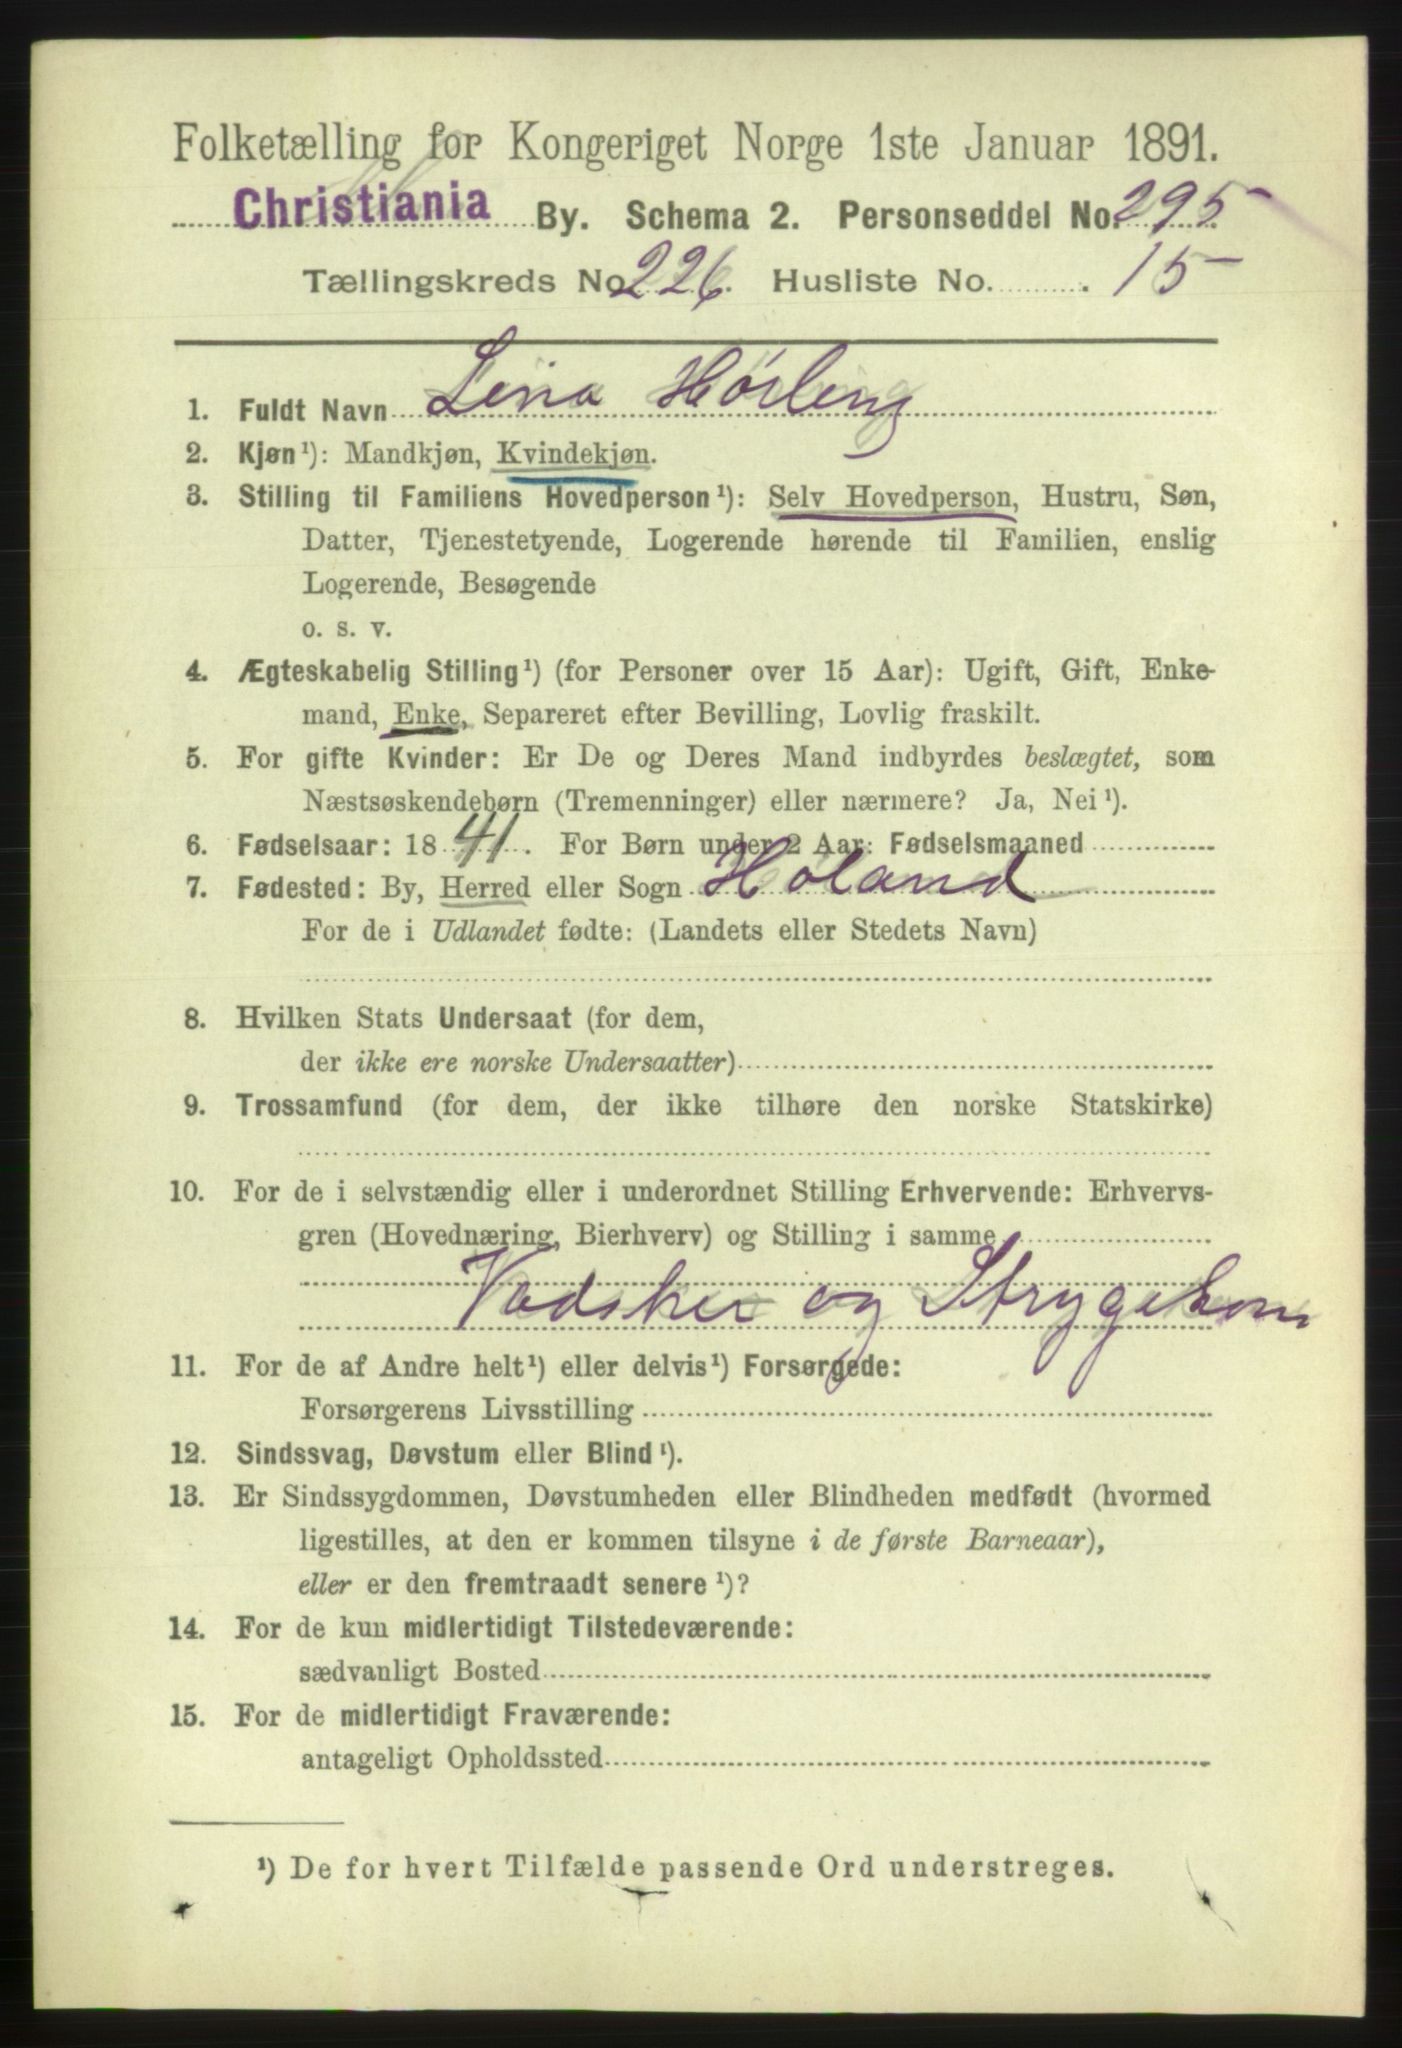 Folketælling for Kongeriget Norge 1ste Januar 1891.
Christiania By. Schema 2. Personseddel No. 295
Tællingskreds No. 226. Husliste No. 15
1. Fuldt Navn Lina Hørling
2. Kjøn¹): Mandkjøn, Kvindekjøn.
3. Stilling til Familiens Hovedperson¹): Selv Hovedperson, Hustru, Søn,
Datter, Tjenestetyende, Logerende hørende til Familien, enslig
Logerende, Besøgende
o. s. v.
4. Ægteskabelig Stilling¹) (for Personer over 15 Aar): Ugift, Gift, Enke-
mand, Enke, Separeret efter Bevilling, Lovlig fraskilt.
5. For gifte Kvinder: Er De og Deres Mand indbyrdes beslægtet, som
Næstsøskendebørn (Tremenninger) eller nærmere? Ja, Nei¹).
6. Fødselsaar: 1841. For Børn under 2 Aar: Fødselsmaaned
7. Fødested: By, Herred eller Sogn Høland
For de i Udlandet fødte: (Landets eller Stedets Navn)
8. Hvilken Stats Undersaat (for dem,
der ikke ere norske Undersaatter)
9. Trossamfund (for dem, der ikke tilhøre den norske Statskirke)
10. For de i selvstændig eller i underordnet Stilling Erhvervende: Erhvervs-
gren (Hovednæring, Bierhverv) og Stilling i samme
Vadsker og Strygekone
11. For de af Andre helt¹) eller delvis¹) Forsørgede:
Forsørgerens Livsstilling
12. Sindssvag, Døvstum eller Blind¹).
13. Er Sindssygdommen, Døvstumheden eller Blindheden medfødt (hvormed
ligestilles, at den er kommen tilsyne i de første Barneaar),
eller er den fremtraadt senere¹)?
14. For de kun midlertidigt Tilstedeværende:
sædvanligt Bosted
15. For de midlertidigt Fraværende:
antageligt Opholdssted
¹) De for hvert Tilfælde passende Ord understreges.